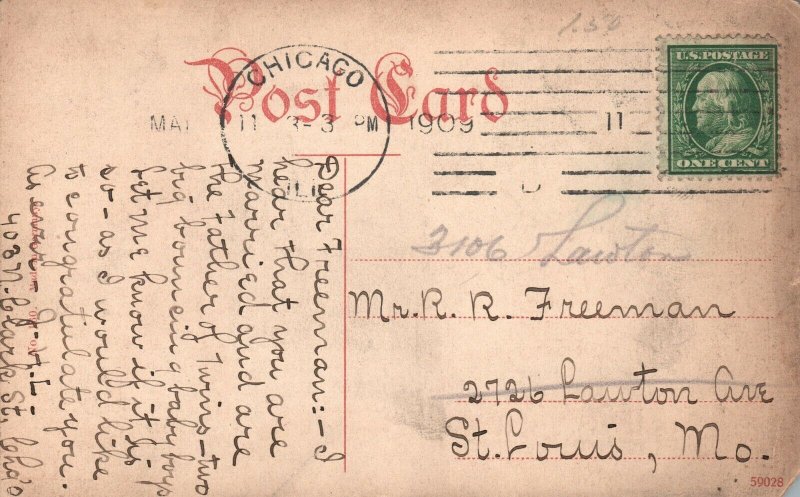 1.50
CHICAGO
Post Card
MAR 11 3-3 PM 1909 11
ILL
U.S. POSTAGE
ONE CENT
Dear Freeman:- I
hear that you are
married and are
the father of twins - two
big bouncing baby boys
Let me know if it is
so - as I would like
to congratulate you.
As ever J.H.L.
403 N. Clark St. Chgo
3106 Lawton
Mr. R. R. Freeman
2726 Lawton Ave
St. Louis, Mo.
59028